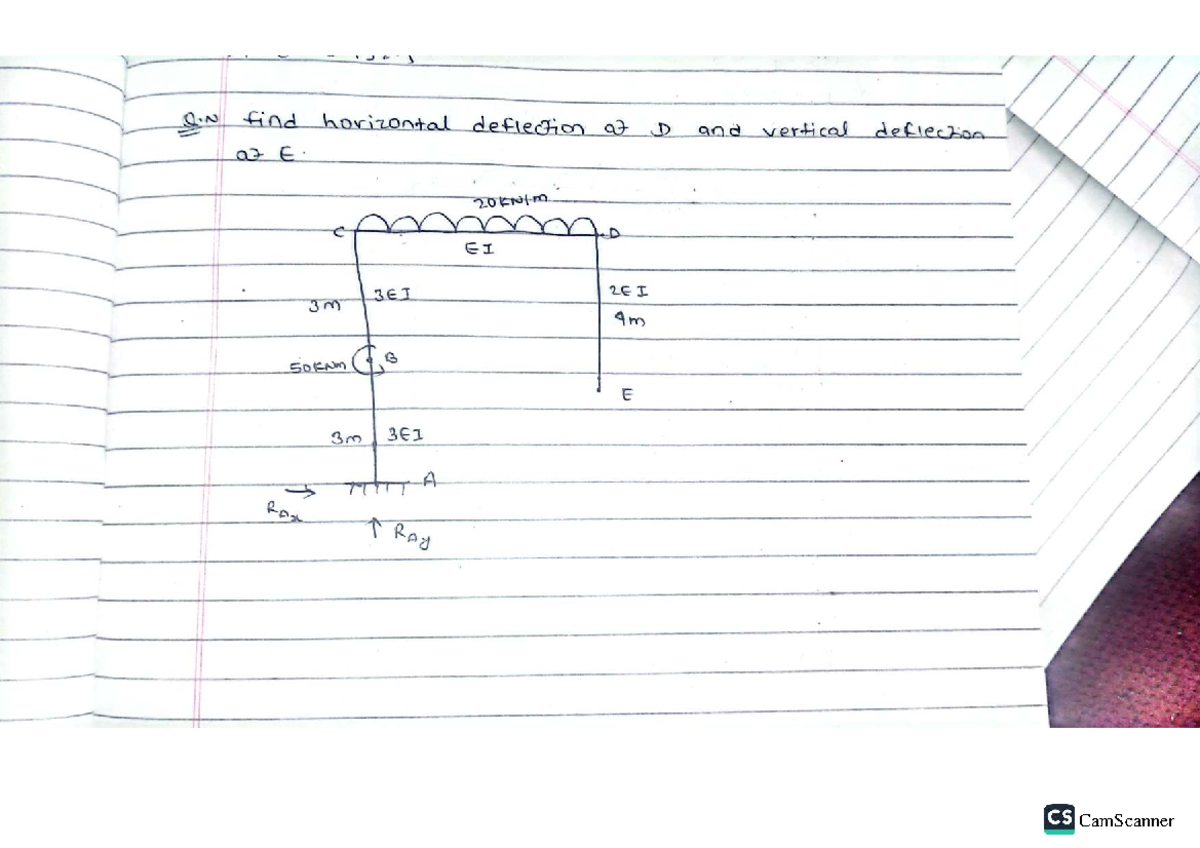 Q.N find horizontal deflection at D and vertical deflection
at E.
20KN/m
C
D
EI
3EI
2EI
3m
4m
50KNm
B
E
3m
3EI
A
RAx
RAy
CS CamScanner